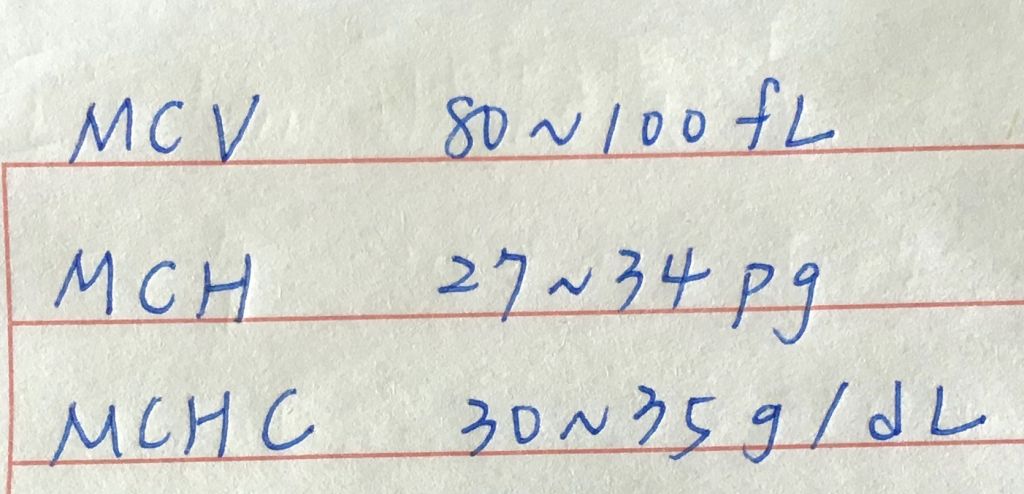 MCV 80~100 fL
MCH 27~34 pg
MCHC 30~35 g/dL